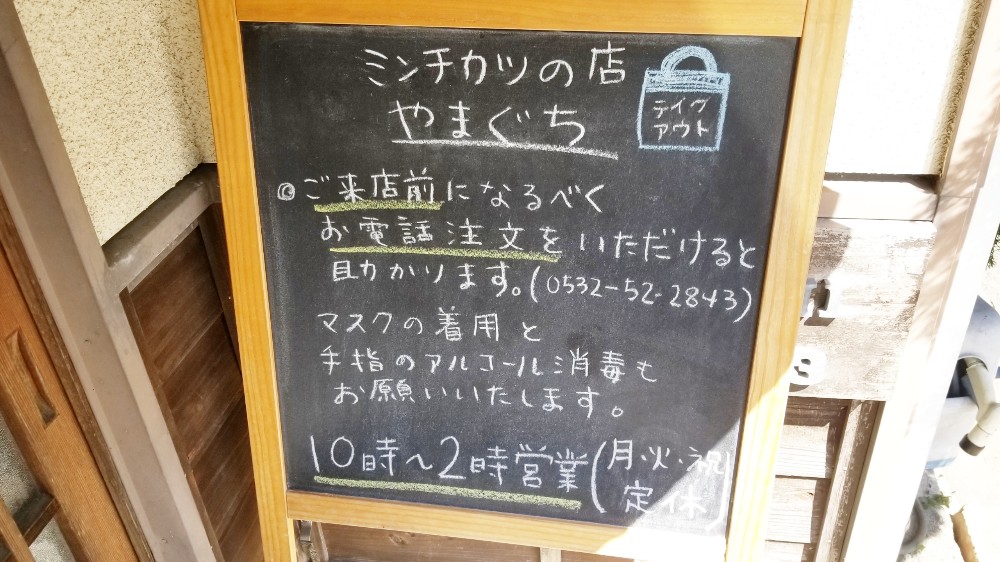 ミンチカツの店
やまぐち
テイク
アウト
◎ご来店前になるべく
お電話注文をいただけると
助かります。(0532-52-2843)
マスクの着用と
手指のアルコール消毒も
お願いいたします。
10時~2時営業(月・火・祝
定休)